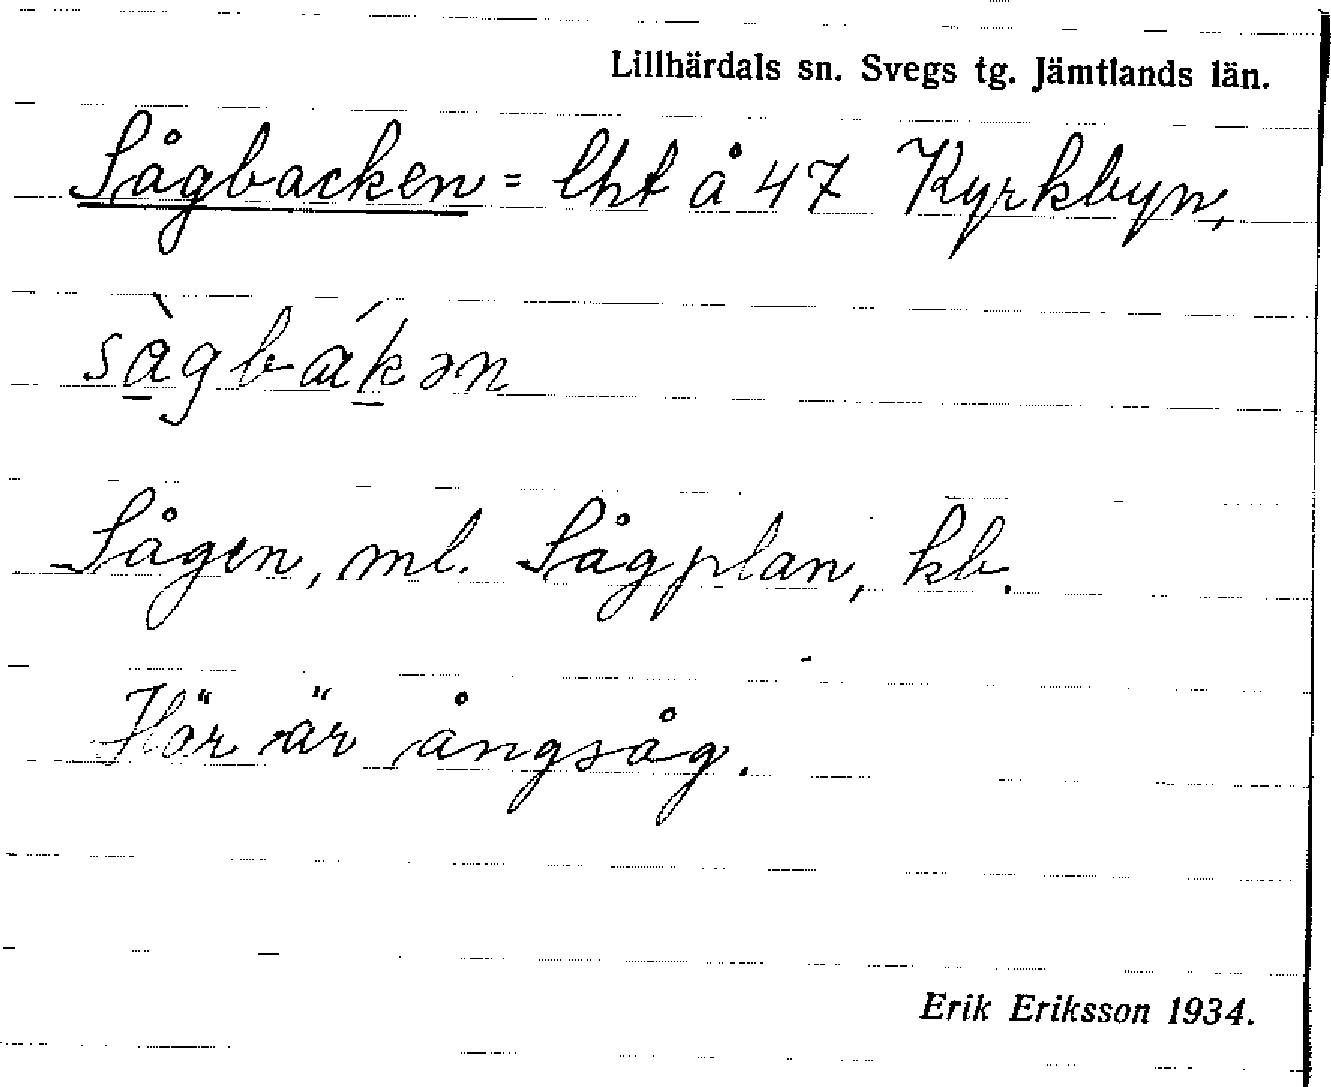 Lillhärdals sn. Svegs tg. Jämtlands län.
Sågbacken = lht å 47 Kyrkbyn,
sà̠gbák̠ən
Sågen, ml. Sågplan, kb.
Här är ångsåg.
Erik Eriksson 1934.